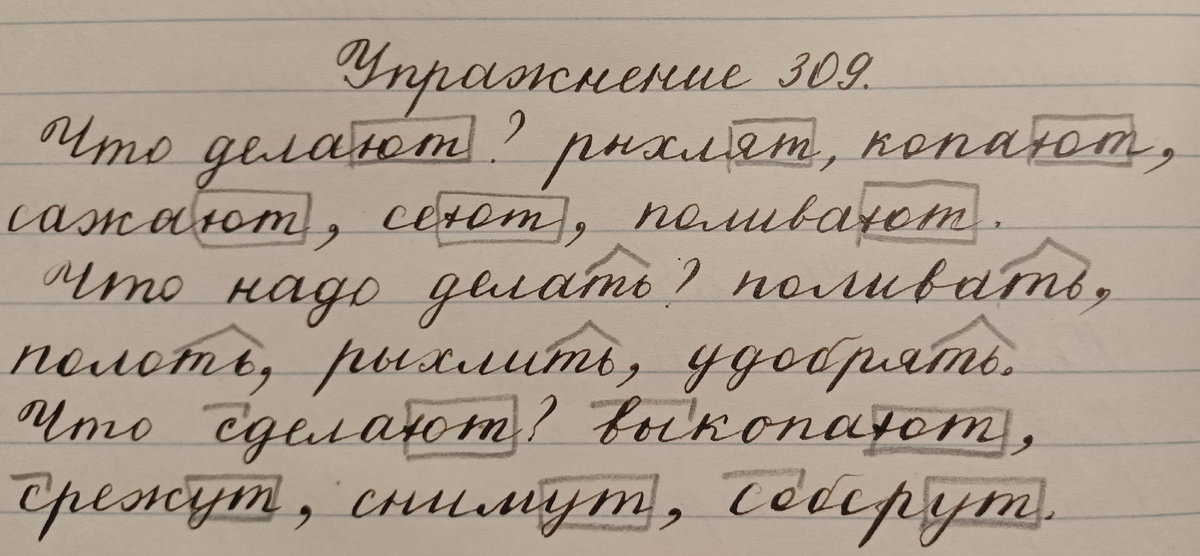 Упражнение 309.
Что делают? рыхлят, копают,
сажают, сеют, поливают.
Что надо делать? поливать,
полоть, рыхлить, удобрять.
Что сделают? выкопают,
срежут, снимут, соберут.